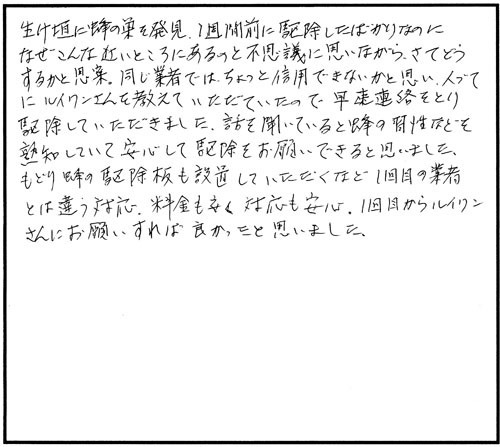 生け垣に蜂の巣を発見。1週間前に駆除したばかりなのに
なぜこんな近いところにあるのと不思議に思いながら、さてどう
するかと思案。同じ業者では、ちょっと信用できないかと思い、人づて
にルイワンさんを教えていただいていたので早速連絡をとり
駆除していただきました。話を聞いていると蜂の習性などを
熟知していて安心して駆除をお願いできると思いました。
もどり蜂の駆除板も設置していただくなど1回目の業者
とは違う対応。料金も安く対応も安心。1回目からルイワン
さんにお願いすれば良かったと思いました。